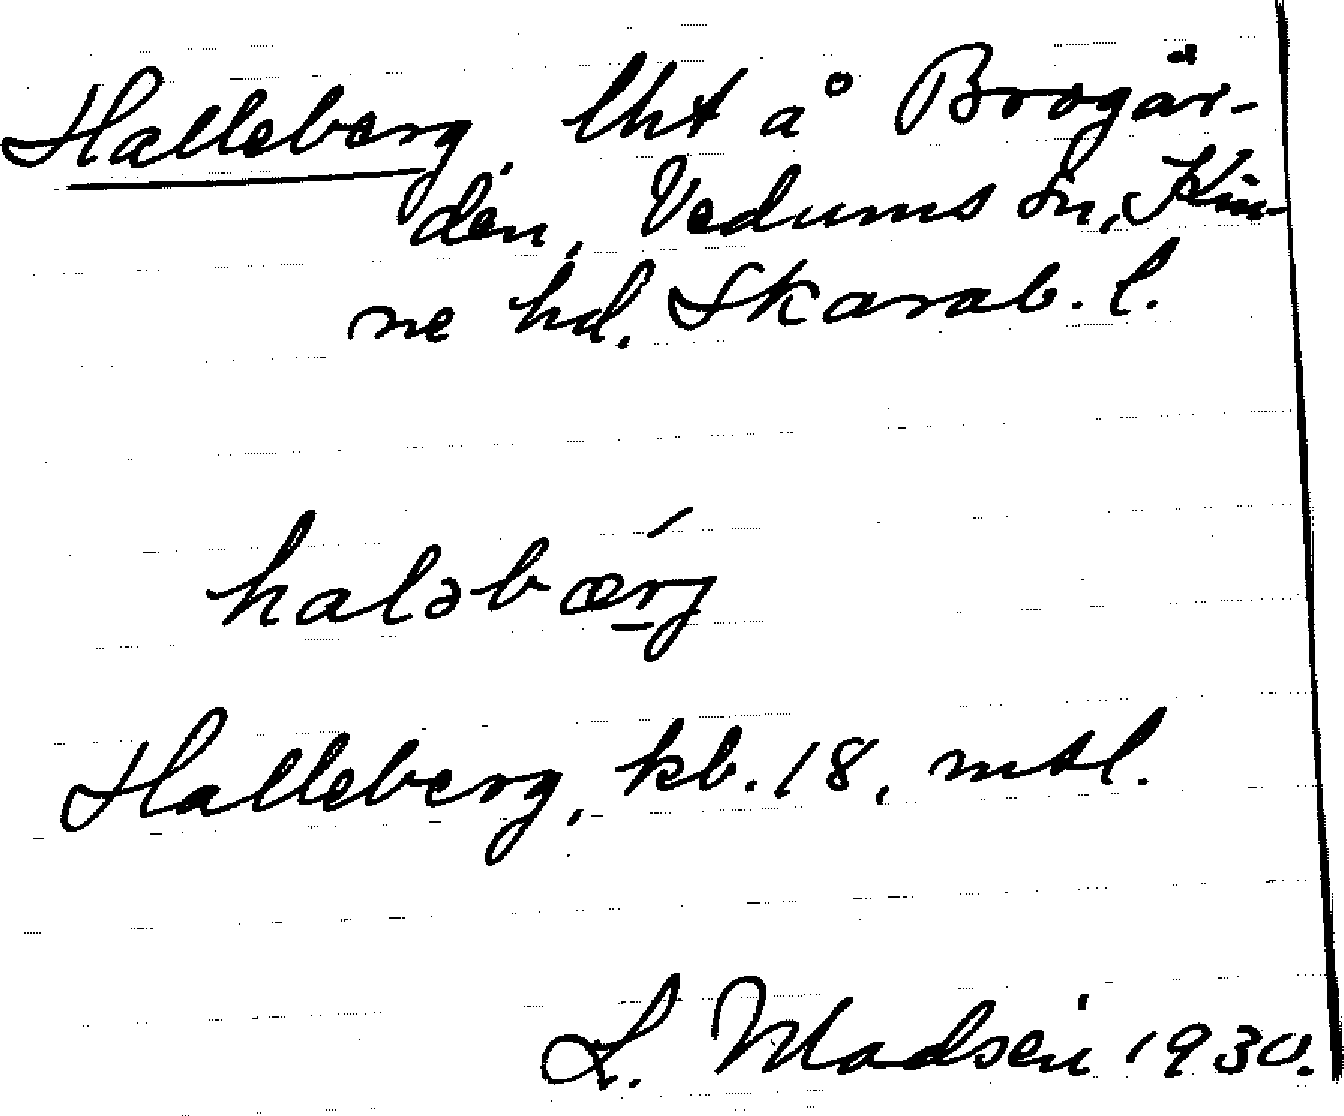 Halleberg, lht å Brogår-
den, Vedums sn, Kin-
ne hd. Skarab. l.
haləbærj
Halleberg, kb. 18, mtl.
L. Madsén 1930.